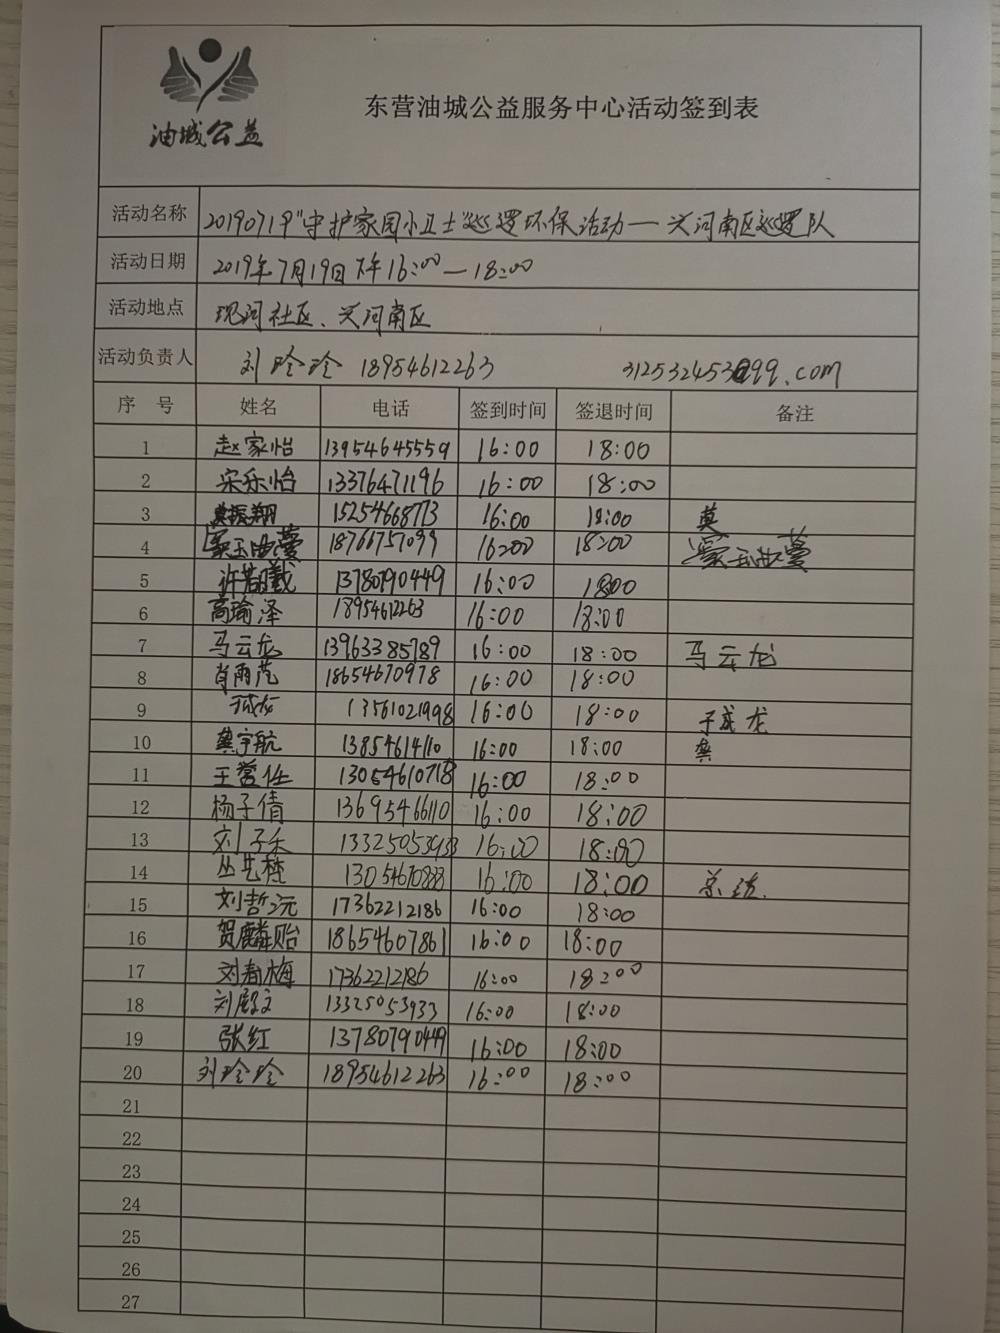 油城公益
东营油城公益服务中心活动签到表
活动名称 20190719"守护家园小卫士"巡逻环保活动—兴河南区巡逻队
活动日期 2019年7月19日下午16:00—18:00
活动地点 现河社区、兴河南区
活动负责人 刘玲玲 18954612263 312532453@qq.com
序号 姓名 电话 签到时间 签退时间 备注
1 赵家怡 13954645559 16:00 18:00
2 宋乐怡 13376471196 16:00 18:00
3 莫振翔 15254668773 16:00 18:00 莫
4 18766757099 16:00 18:00
5 许若曦 13780790449 16:00 18:00
6 高瑜泽 18954612263 16:00 18:00
7 马云龙 13963385789 16:00 18:00 马云龙
8 肖雨苋 18654670978 16:00 18:00
9 13561021998 16:00 18:00 于成龙
10 龚宇航 13854614110 16:00 18:00 龚
11 王誉任 13054610718 16:00 18:00
12 杨子倩 13695466110 16:00 18:00
13 刘子禾 13325053933 16:00 18:00
14 丛艺桂 13054670888 16:00 18:00
15 刘哲沅 17362212186 16:00 18:00
16 贺麟贻 18654607861 16:00 18:00
17 刘春梅 17362212186 16:00 18:00
18 刘殿文 13325053933 16:00 18:00
19 张红 13780790449 16:00 18:00
20 刘玲玲 18954612263 16:00 18:00
21
22
23
24
25
26
27